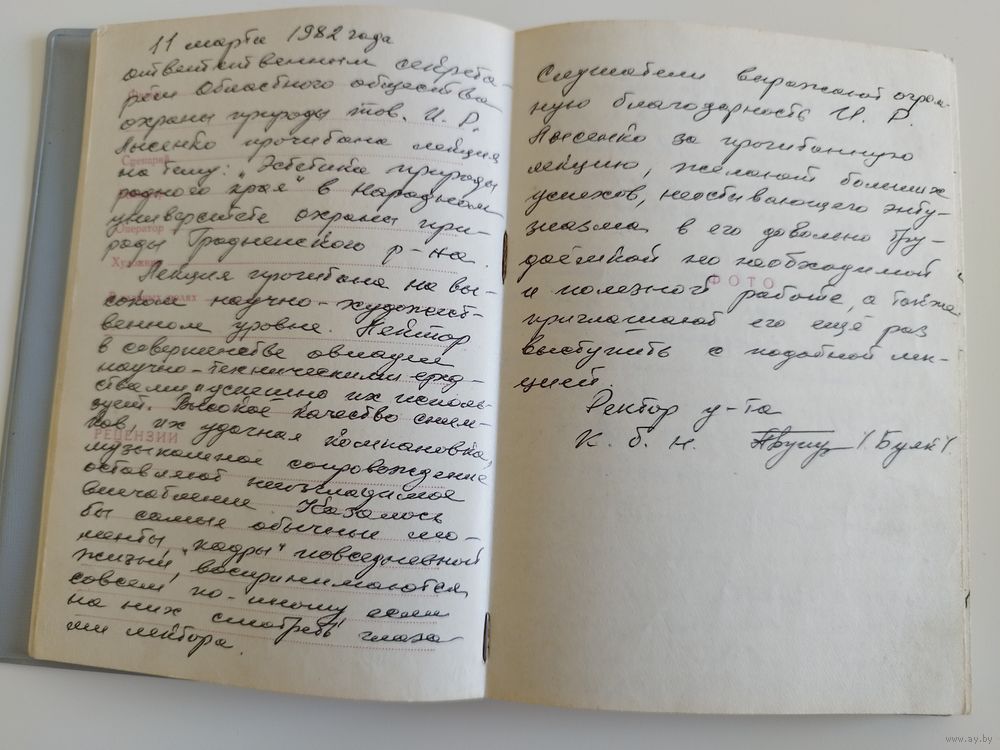 11 марта 1982 года
ответственным секрета-
рём областного общества
охраны природы тов. И. Р.
Лысенко прочитана лекция
Сценарий
на тему: „Эстетика природы
родного края" в Народном
университете охраны при-
Оператор
роды Гродненского р-на.
Художник
Лекция прочитана на вы-
ролях
соком научно-художест-
венном уровне. Лектор
в совершенстве овладел
научно-техническими сред-
ствами и успешно их исполь-
зует. Высокое качество сним-
ков, их удачная компановка,
РЕЦЕНЗИИ
музыкальное сопровождение
оставляют неизгладимое
впечатление. Казалось
бы самые обычные мо-
менты „кадры" повседневной
жизни, воспринимаются
совсем по-иному, если
на них смотреть глаза-
ми лектора.
Слушатели выражают огром-
ную благодарность И. Р.
Лысенко за прочитанную
лекцию, желают больших
успехов, неостывающего энту-
зиазма в его довольно тру-
доёмкой но необходимой
ФОТО
и полезной работе, а также
приглашают его ещё раз
выступить с подобной лек-
цией.
Ректор у-та
К. б. н. (Буяк)
www.ay.by